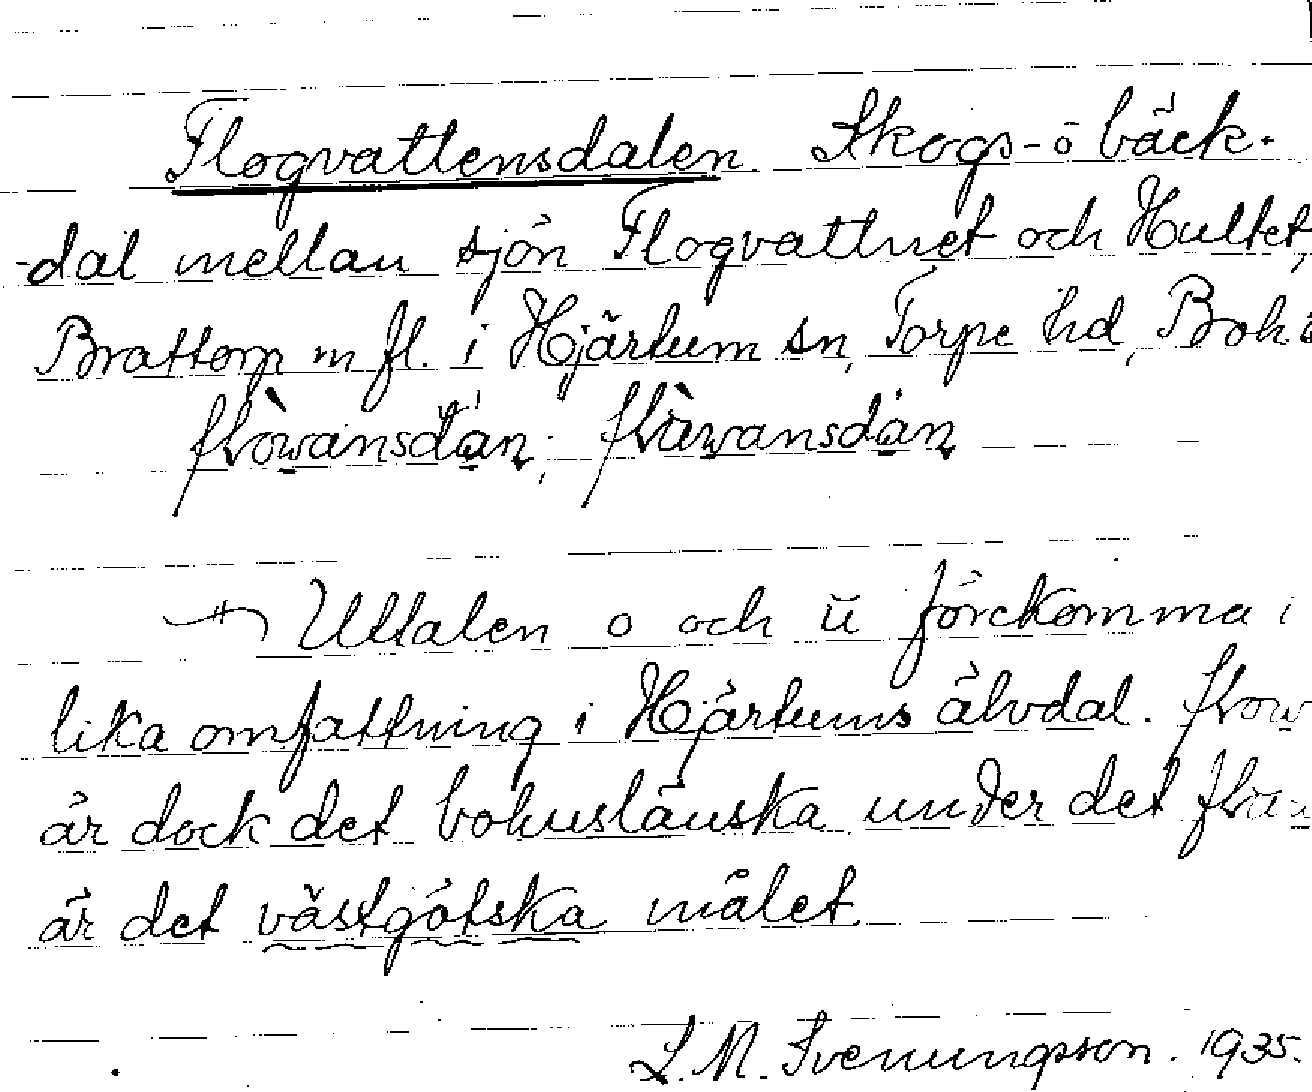 Flogvattensdalen Skogs- o bäck-
-dal mellan sjön Flogvattnet och Hultet,
Brattorp m fl. i Hjärtum sn, Torpe hd, Boh
flòwansdän; flàwansdän
Uttalen o och ü förekomma i
lika omfattning i Hjärtums älvdal. flow
är dock det bohuslänska under det
är det västgötska målet
L. M. Svenungsson. 1935.